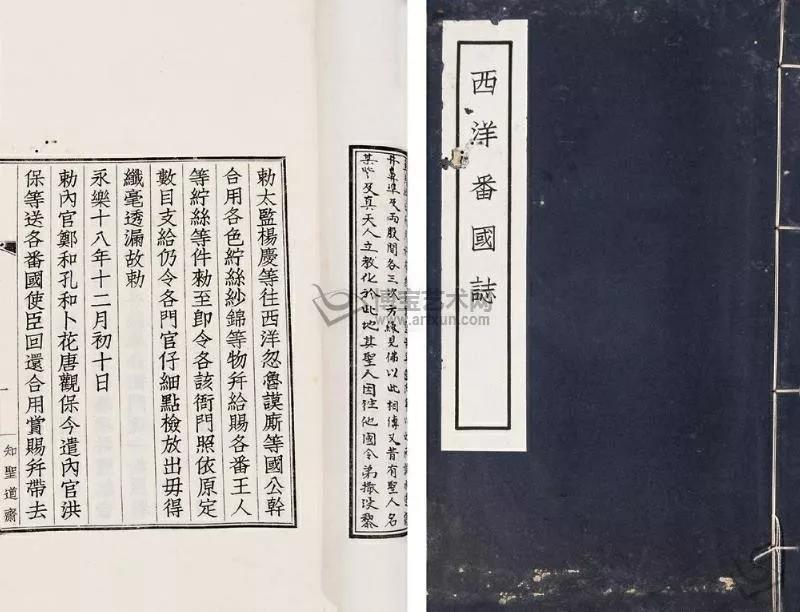 西洋番國誌
敕太監楊慶等往西洋忽魯謨廝等國公幹
合用各色紵絲紗錦等物幷給賜各番王人
等紵絲等件敕至即令各該衙門照依原定
數目支給仍令各門官仔細點檢放出毋得
纖毫透漏故敕
永樂十八年十二月初十日
敕內官鄭和孔和卜花唐觀保今遣內官洪
保等送各番國使臣回還合用賞賜幷帶去
一
知聖道齋
及兩股間各三次方緣見佛以此相傳又昔有聖人名
某些及真天人立教化於此地其聖人因往他國令弟撒沒黎
博宝艺术网
artxun.com